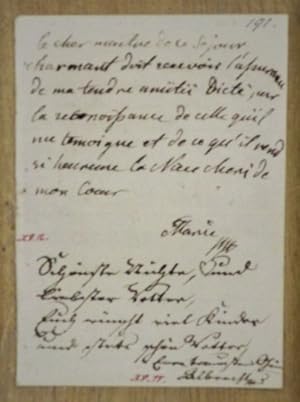 191.
le cher maitre de ce séjour
charmant doit recevoir l'assurance
de ma tendre amitié Dicté, par
la reconoissance de celle qu'il
me temoigne et de ce qu'il rend
si heureuse la cherie de
mon Coeur
Marie
Schönste Nichte, und
Liebster Vetter,
Euch wünscht viel Kinder
und stets schön Wetter
Euer
Albrecht